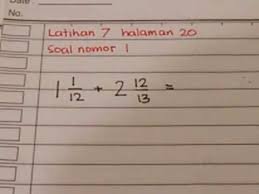 Date :
No.
Latihan 7 halaman 20
Soal nomor 1
1 1/12 + 2 12/13 =